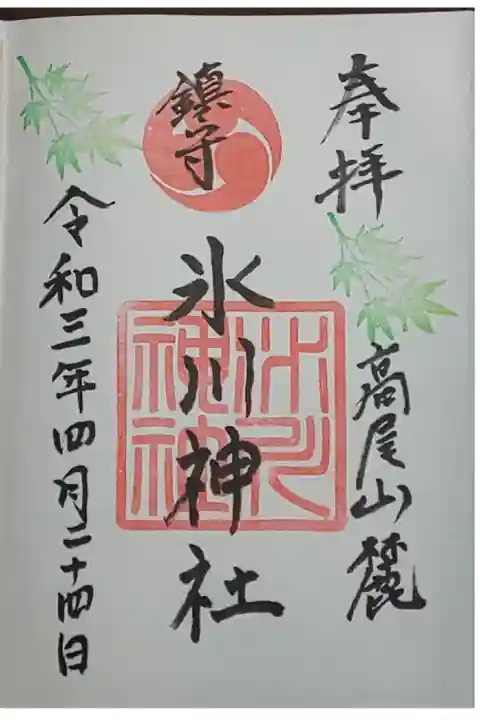 奉拝
高尾山麓
鎮守
氷川神社
令和三年四月二十四日